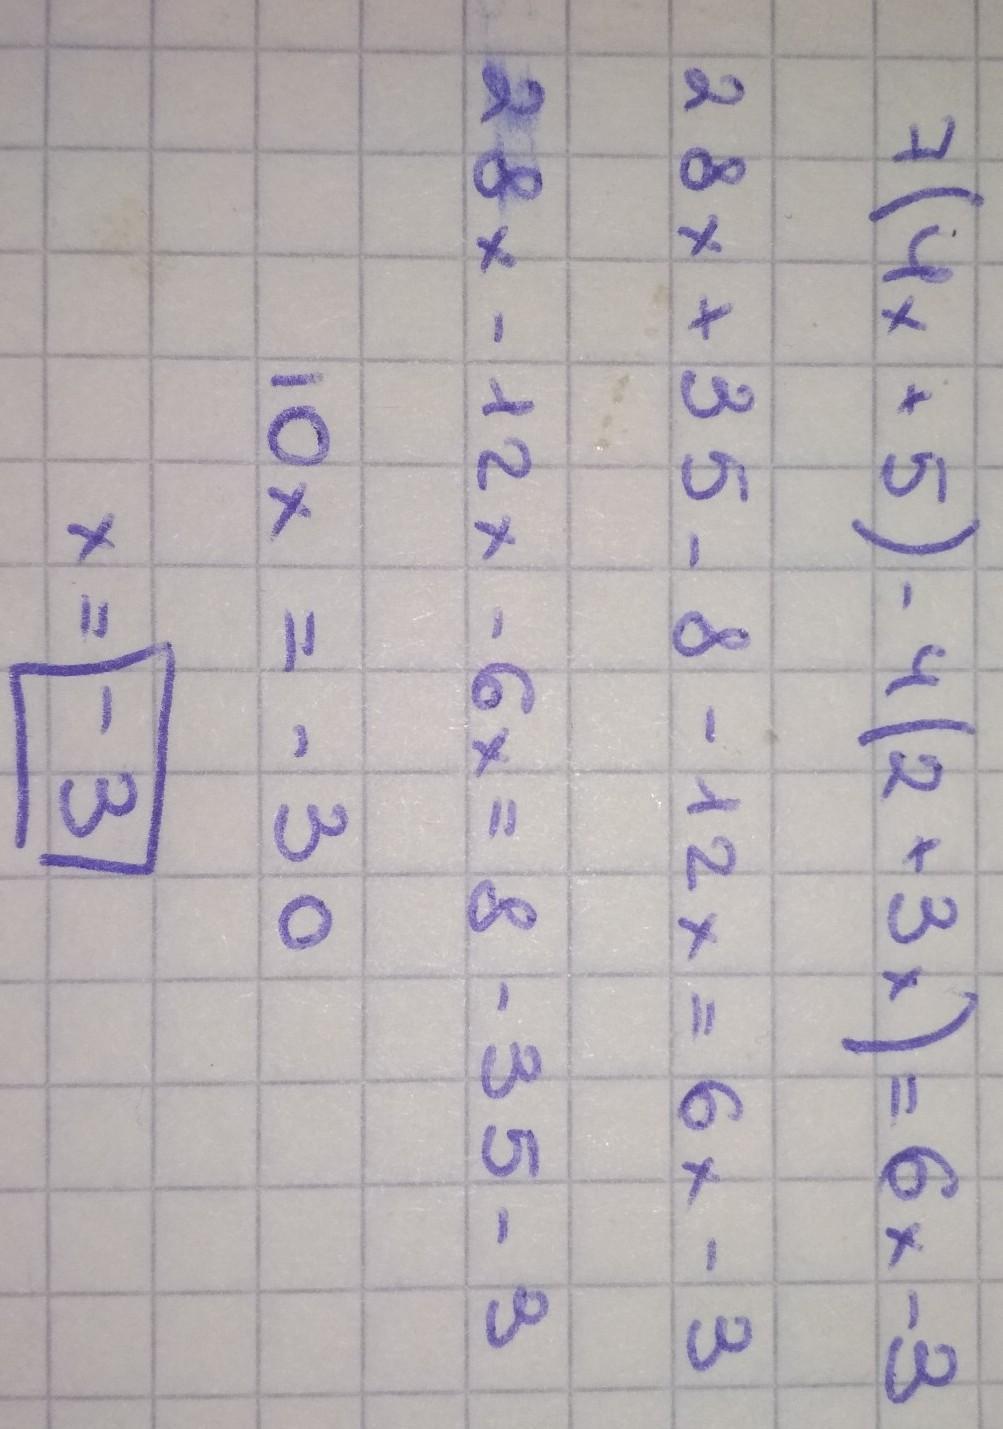 7(4x+5)-4(2+3x)=6x-3
28x+35-8-12x=6x-3
28x-12x-6x=8-35-3
10x=-30
x=-3